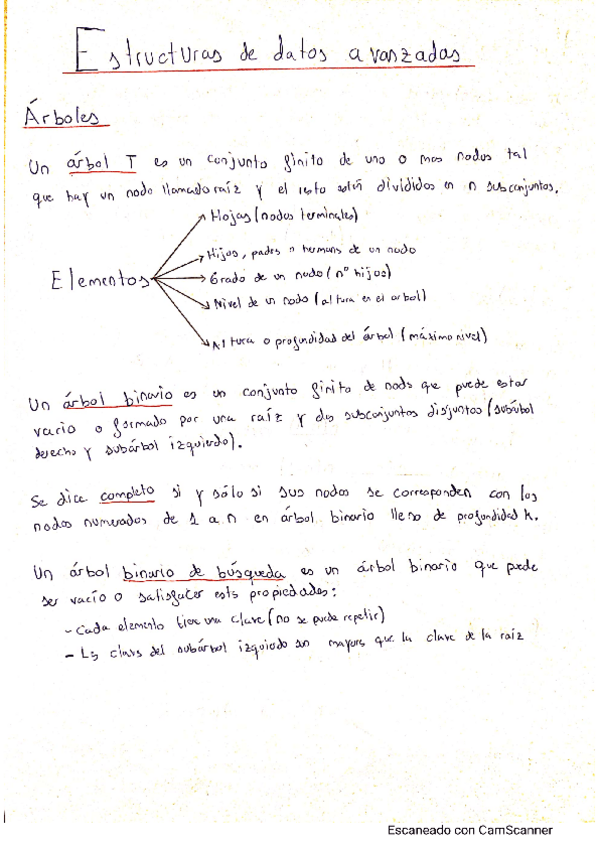 Estructuras de datos avanzadas
Árboles
Un árbol T es un conjunto finito de uno o mas nodos tal
que hay un nodo llamado raíz y el resto están divididos en n subconjuntos.
Hojas (nodos terminales)
Hijos, padres o hermans de un nodo
Elementos
Grado de un nodo (nº hijos)
Nivel de un nodo (altura en el arbol)
Altura o profundidad del árbol (máximo nivel)
Un árbol binario es un conjunto finito de nods que puede estar
vacio o formado por una raíz y dos subconjuntos disjuntos (subárbol
derecho y subárbol izquierdo).
Se dice completo si y sólo si sus nodos se corresponden con los
nodos numerados de 1 a n en árbol binario lleno de profundidad k.
Un árbol binario de búsqueda es un árbol binario que puede
ser vacío o satisfacer ests propiedades:
- Cada elemento tiene una clave (no se puede repetir)
- Ls clavs del subárbol izquierdo son mayores que la clave de la raíz
Escaneado con CamScanner